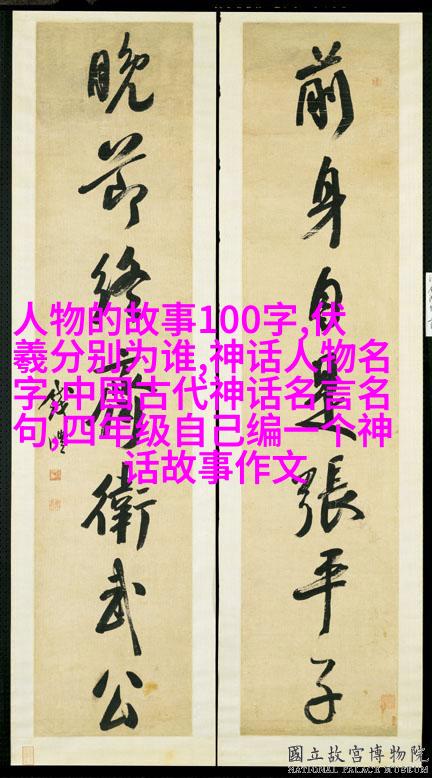 前身自是張平子
晚節終衛武公
人物的故事100字,伏
羲分别为谁,神话人物名
字,中国古代神话名言名
句,四年级自己编一个神
话故事作文
國立故宮博物院
NATIONAL PALACE MUSEUM